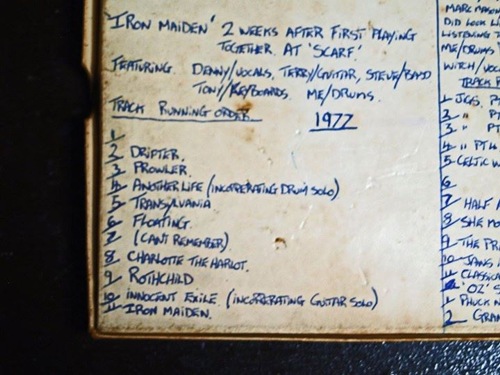 'IRON MAIDEN' 2 WEEKS AFTER FIRST PLAYING
TOGETHER. AT 'SCARF'
FEATURING. DENNY/VOCALS, TERRY/GUITAR, STEVE/BASS
TONY/KEYBOARDS. ME/DRUMS.
TRACK RUNNING ORDER.
1977
1
2 DRIFTER.
3 PROWLER.
4 ANOTHER LIFE (INCORPERATING DRUM SOLO)
5 TRANSYLVANIA
6 FLOATING.
7 (CAN'T REMEMBER)
8 CHARLOTTE THE HARLOT.
9 ROTHCHILD
10 INNOCENT EXILE. (INCORPERATING GUITAR SOLO)
11 IRON MAIDEN.
MARC MASON
DID LOOK LI
LISTENING T
ME/DRUMS
WITCH/VOC
TRACK R
1 JIGS. P
2 " PT
3 " PT
4 " PT 4
5 CELTIC W
6
7 HALF A
8 SHE MO
9 THE PR
10 JAMS
11 CLASSICA
'OZ' S
1 PHUCK
2 GRAN